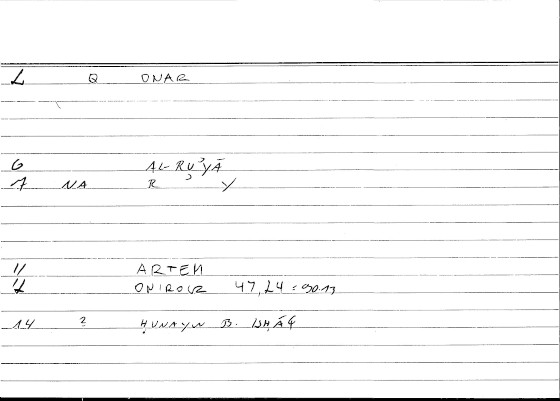 2 Q ONAR
6 AL-RUʾYĀ
7 NA R ʾ Y
11 ARTEM
12 ONIROCR 47,24 = 90.13
14 ? ḤUNAYN B. ISḤĀQ